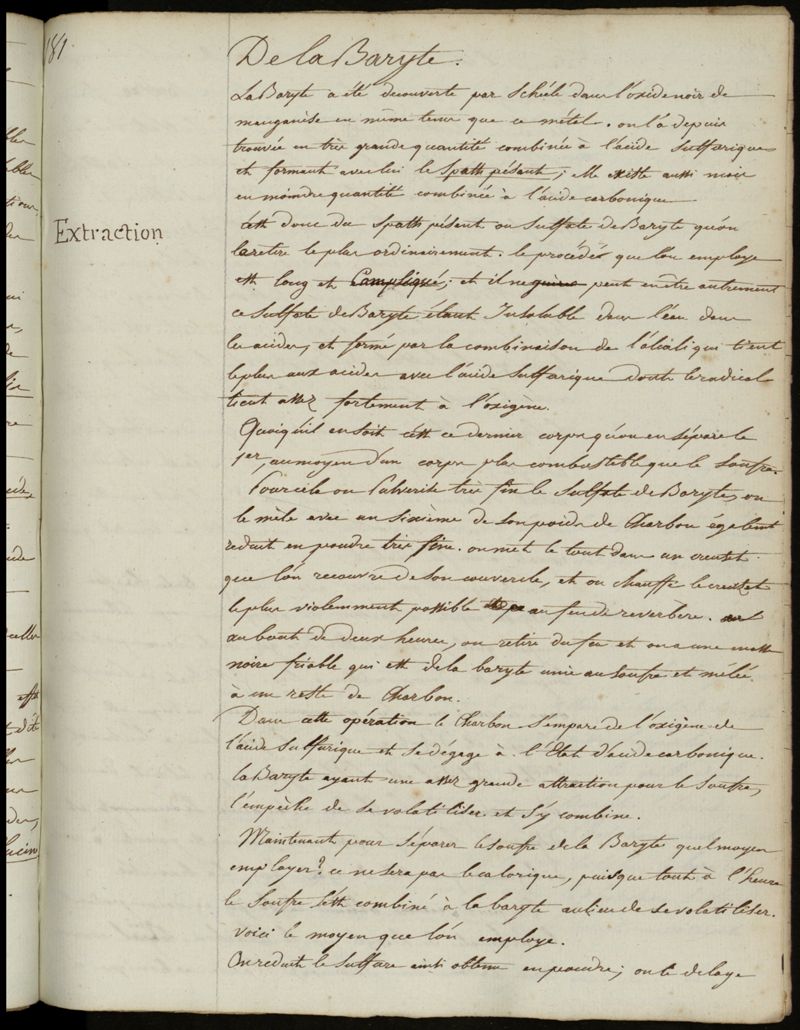 181
De la Baryte.
La Baryte a été decouverte par Schéele dans l'oxide noir de
manganèse en même tems que ce métal. on l'a depuis
trouvée en très grande quantité combinée à l'acide Sulfurique
et formant avec lui le Spath pésant; elle existe aussi mais
en moindre quantité combinée à l'acide carbonique
Extraction
c'est donc du Spath pésent ou Sulfate de Baryte qu'on
la retire le plus ordinairement. le procédés que l'on employe
est long et Compliqué; et il ne peut en être autrement
ce Sulfate de Baryte étant Insoluble dans l'eau dans
les acides, et formé par la combinaison de l'alcali qui tient
le plus aux acides avec l'acide Sulfurique dont le radical
tient assez fortement à l'oxigène.
Quoiqu'il en soit c'est ce dernier corps qu'on en sépare le
1er, au moyen d'un corps plus combustible que le Soufre.
Pour cela on Pulverise très fin le Sulfate de Baryte, on
le mêle avec un Sixième de son poids de Charbon également
reduit en poudre très fine. on met le tout dans un creuset
que l'on recouvre de son couvercle, et on chauffe le creuset
le plus violemment possible au feu de reverbère.
au bout de deux heures, on retire du feu et on a une masse
noire friable qui est de la baryte unie au Soufre et mélée
à un reste de Charbon.
Dans cette opération le Charbon S'empare de l'oxigène de
l'acide Sulfurique et se dégage à l'Etat d'acide carbonique.
la Baryte ayant une assez grande attraction pour le Soufre,
l'empêche de se volatiliser et S'y combine.
Maintenant pour Séparer le Soufre de la Baryte quel moyen
employer? ce ne sera pas le calorique, puisque tout à l'heure
le Soufre S'est combiné à la baryte au lieu de se volatiliser.
voici le moyen que l'on employe.
On reduit le Sulfure ainsi obtenu en poudre; on le delaye